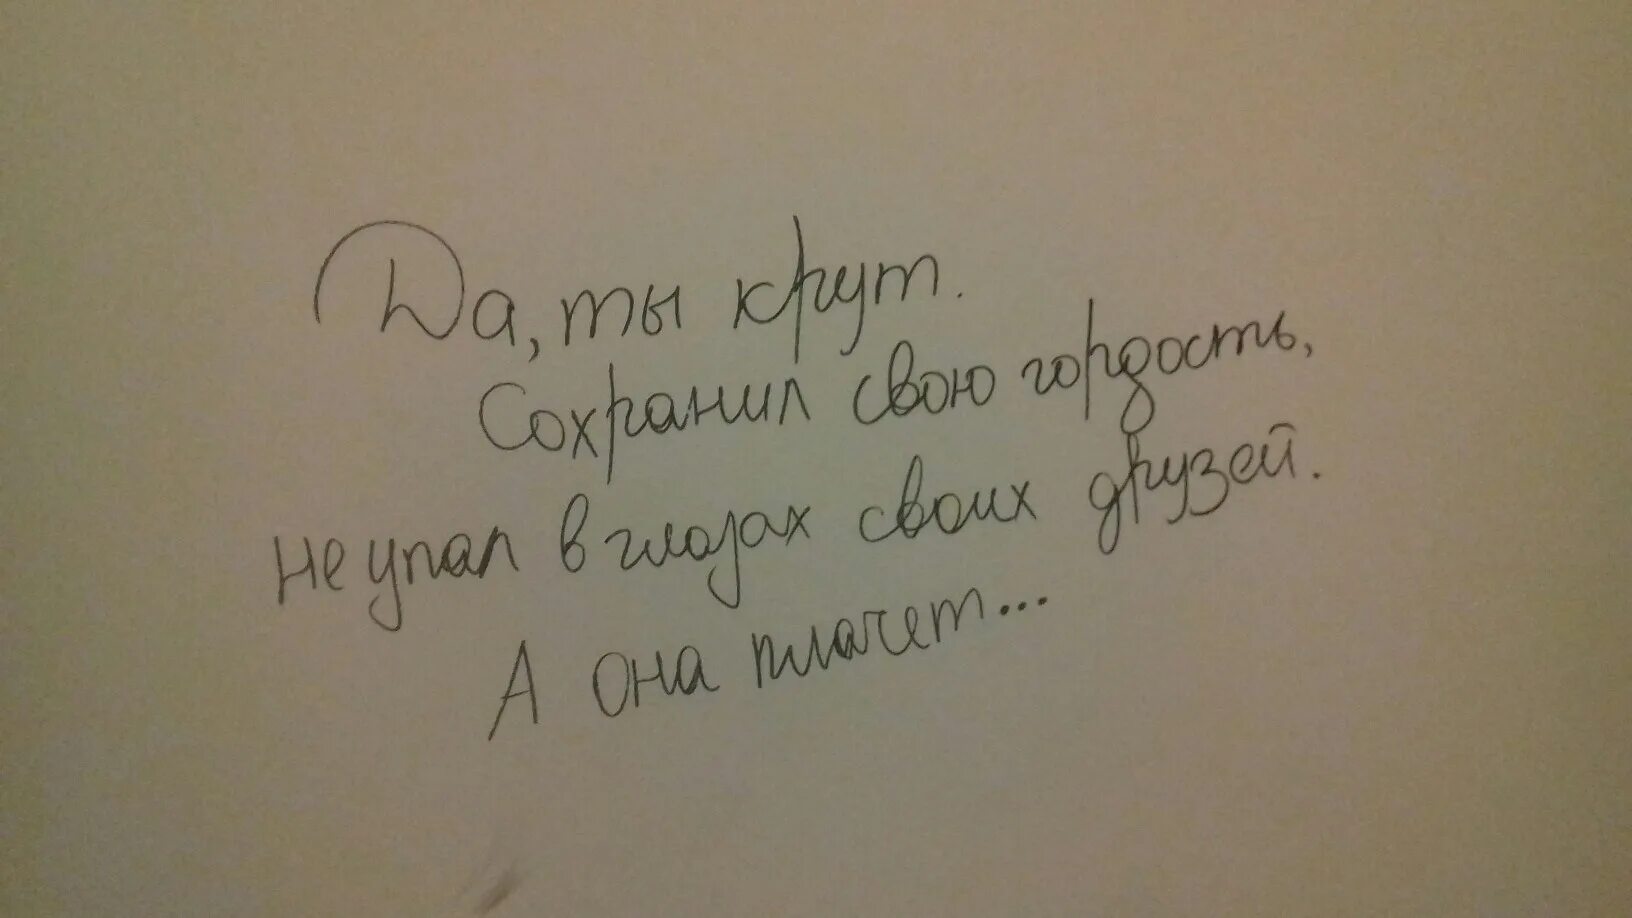 Да, ты крут.
Сохранил свою гордость,
не упал в глазах своих друзей.
А она плачет...